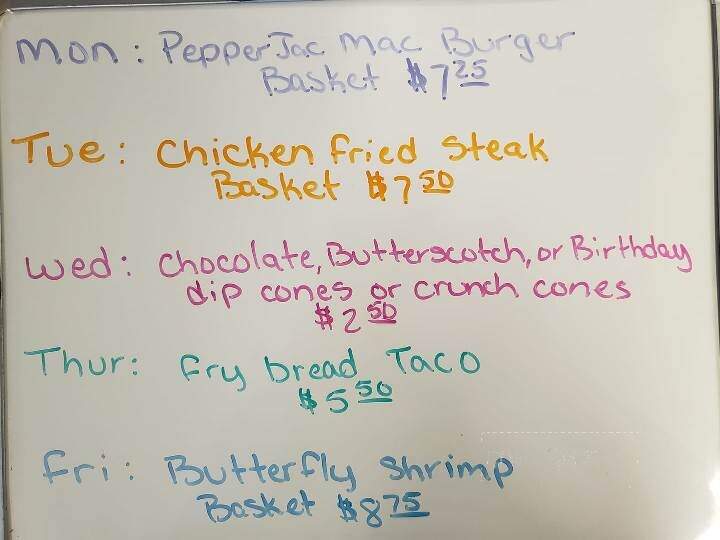 Mon: Pepper Jac Mac Burger
Basket $7 25
Tue: Chicken fried Steak
Basket $7 50
Wed: Chocolate, Butterscotch, or Birthday
dip cones or crunch cones
$2 50
Thur: Fry bread Taco
$5 50
Fri: Butterfly Shrimp
Basket $8 75